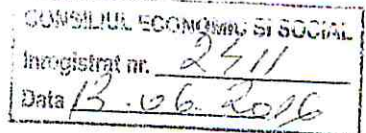 CONSILIUL ECONOMIC SI SOCIAL
Inregistrat nr. 2411
Data 13.06.2016